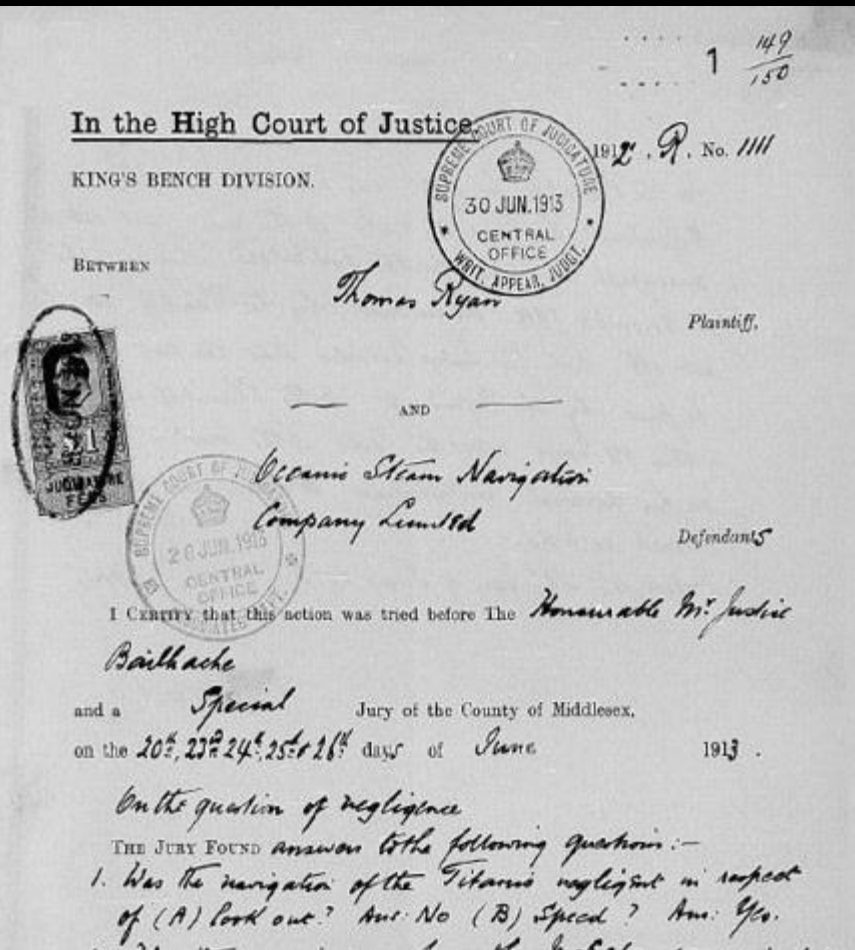 1 149
150
In the High Court of Justice.
1912. R. No. 1111
KING'S BENCH DIVISION.
SUPREME COURT OF JUDICATURE
30 JUN.1913
CENTRAL
OFFICE
WRIT, APPEAR, JUDGT.
BETWEEN
Thomas Ryan
Plaintiff,
AND
£1
JUDICATURE
FEES
Oceanic Steam Navigation
Company Limited
Defendants
SUPREME COURT OF JUDICATURE
26 JUN.1913
CENTRAL
OFFICE
I CERTIFY that this action was tried before The Honourable Mr. Justice
Bailhache
and a Special Jury of the County of Middlesex,
on the 20th, 23rd 24th, 25th & 26th days of June 1913.
On the question of negligence
THE JURY FOUND answers to the following questions:-
1. Was the navigation of the Titanic negligent in respect
of (A) look out? Ans: No (B) Speed? Ans: Yes.